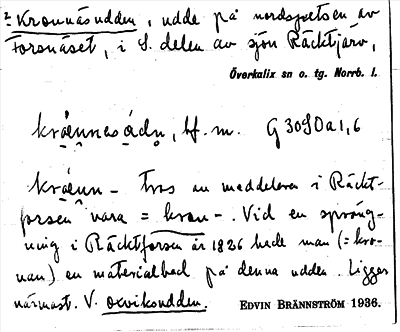 Kronnäsudden, udde på nordspetsen av
Forsnäset, i S. delen av sjön Räcktjärv,
Överkalix sn o. tg. Norrb. l.
bf. m. G30SDa1,6
Tros av meddelaren i Räckt-
forsen vara = kron-. Vid en spräng-
ning i Räcktforsen år 1826 hade man (= kro-
nan) en materialbod på denna udde. Ligger
närmast V. oxviksudden.
EDVIN BRÄNNSTRÖM 1936.